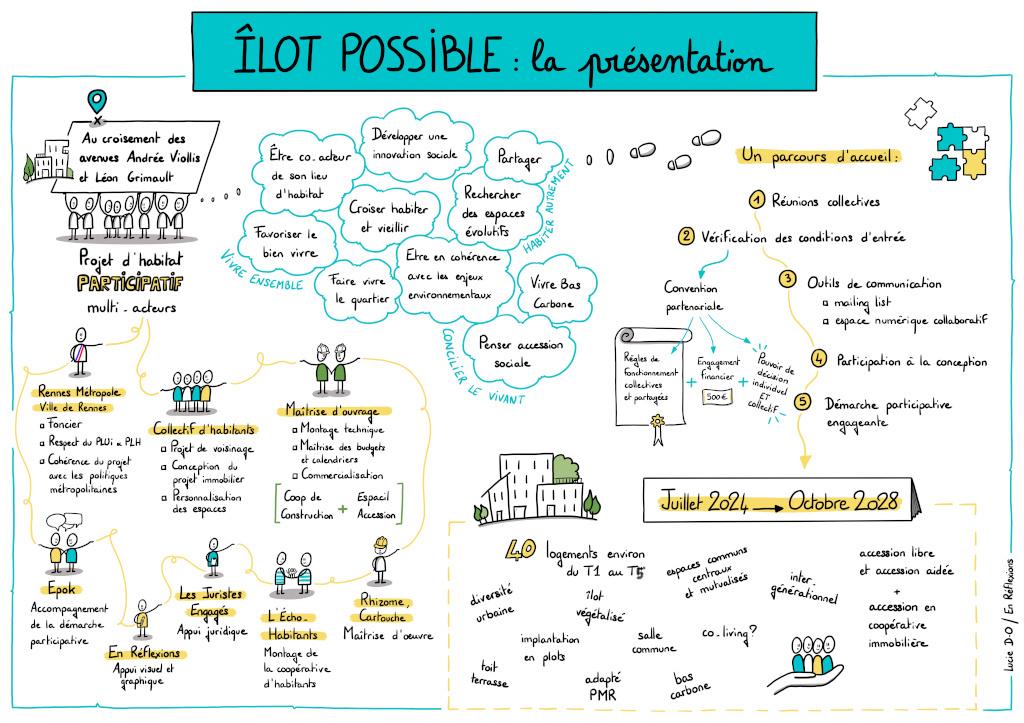 ÎLOT POSSIBLE : la présentation
Au croisement des
avenues Andrée Viollis
et Léon Grimault
Projet d'habitat
PARTICIPATIF
multi-acteurs
Être co-acteur
de son lieu
d'habitat
Développer une
innovation sociale
Partager
Croiser habiter
et vieillir
Rechercher
des espaces
évolutifs
Favoriser le
bien vivre
Faire vivre
le quartier
Etre en cohérence
avec les enjeux
environnementaux
Vivre Bas
Carbone
Penser accession
sociale
VIVRE ENSEMBLE
HABITER AUTREMENT
CONCILIER LE VIVANT
Un parcours d'accueil :
1 Réunions collectives
2 Vérification des conditions d'entrée
Convention
partenariale
Règles de
fonctionnement
collectives
et partagées
+
Engagement
financier
500€
+
Pouvoir de
décision
individuel
ET
collectif
3 Outils de communication
mailing list
espace numérique collaboratif
4 Participation à la conception
5 Démarche participative
engageante
Rennes Métropole
Ville de Rennes
Foncier
Respect du PLUi & PLH
Cohérence du projet
avec les politiques
métropolitaines
Collectif d'habitants
Projet de voisinage
Conception du
projet immobilier
Personnalisation
des espaces
Maîtrise d'ouvrage
Montage technique
Maîtrise des budgets
et calendriers
Commercialisation
[Coop de
Construction + Espacil
Accession]
Epok
Accompagnement
de la démarche
participative
En Réflexions
Appui visuel et
graphique
Les Juristes
Engagés
Appui juridique
L'Écho-
Habitants
Montage de
la coopérative
d'habitants
Rhizome,
Cartouche
Maîtrise d'œuvre
Juillet 2024 → Octobre 2028
40 logements environ
du T1 au T5
diversité
urbaine
îlot
végétalisé
espaces communs
centraux
et mutualisés
inter-
générationnel
accession libre
et accession aidée
+
accession en
coopérative
immobilière
implantation
en plots
salle
commune
co-living ?
toit
terrasse
adapté
PMR
bas
carbone
Lucie D-O / En Réflexions